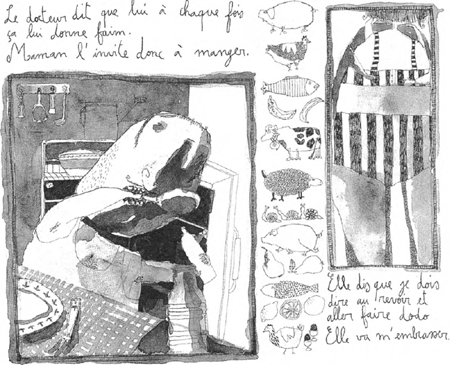 Le docteur dit que lui à chaque fois
ça lui donne faim.
Maman l'invite donc à manger.
Elle dis que je dois
dire au revoir et
aller faire dodo
Elle va m'embrasser.